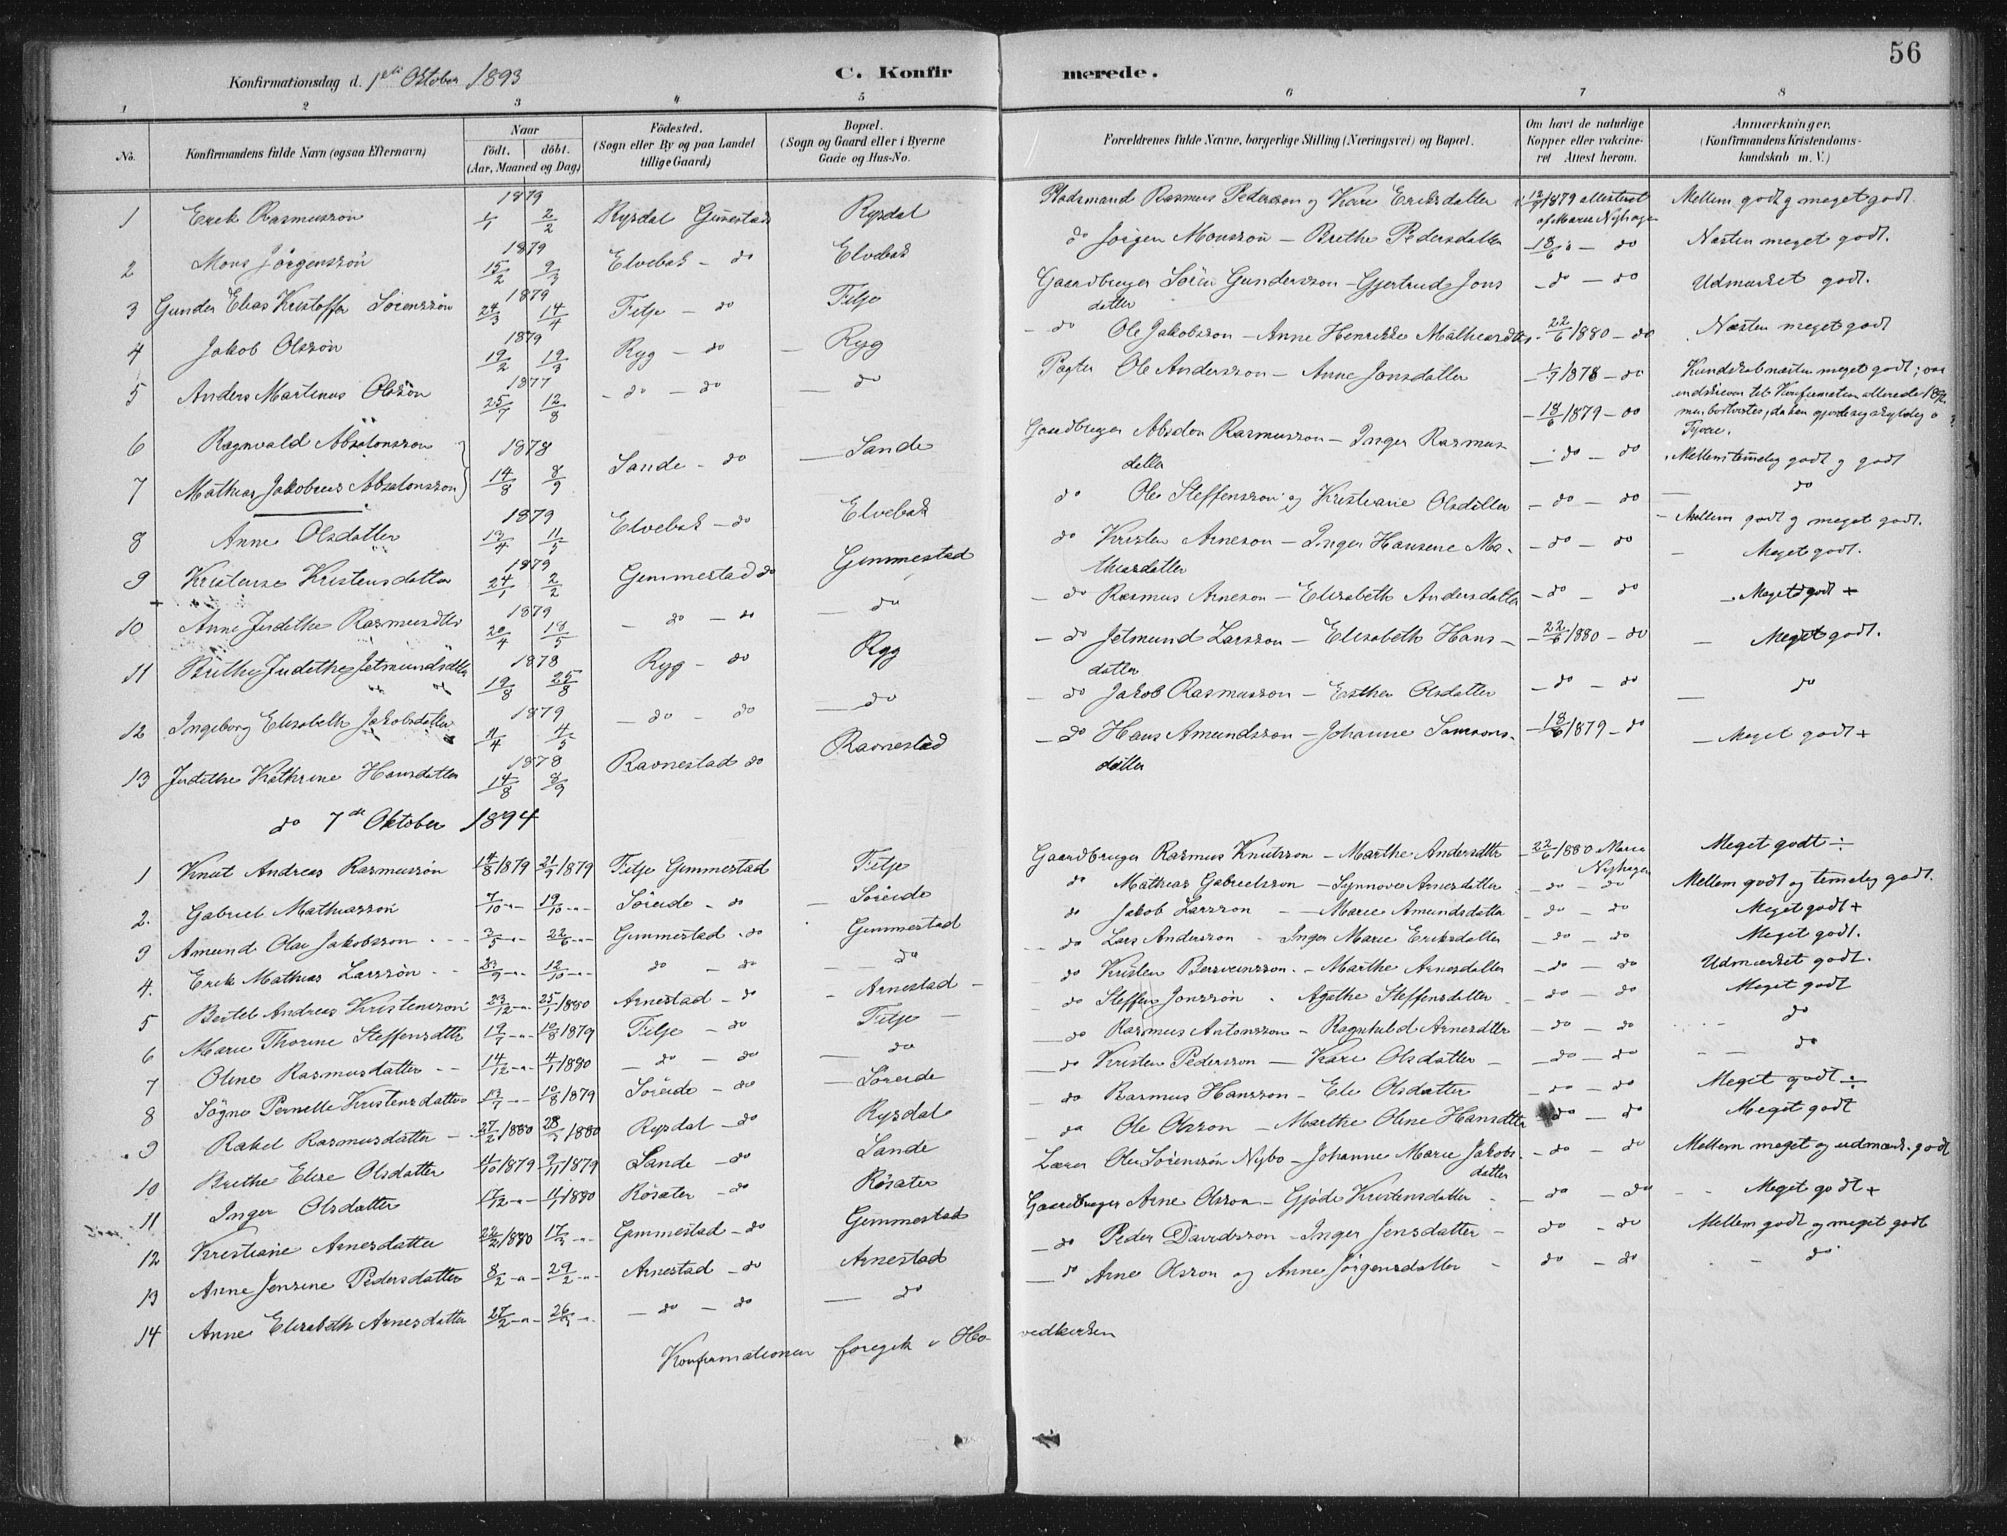 56
Konfirmationsdag d. 1ste Oktober 1893 C. Konfirmerede.
1 2 3 4 5 6 7 8
No. Konfirmandens fulde Navn (ogsaa Efternavn) Naar født. døbt. (Aar, Maaned og Dag) Fødested. (Sogn eller By og paa Landet tillige Gaard) Bopæl. (Sogn og Gaard eller i Byerne Gade og Hus-No. Forældrenes fulde Navne, borgerlige Stilling (Næringsvei) og Bopæl. Om havt de naturlige Kopper eller vakcineret Attest herom. Anmærkninger. (Konfirmandens Kristendomskundskab m. V.)
1 Erik Rasmussøn 1879 1/1 2/2 Rysdal Gimmestad Rysdal Pladsmand Rasmus Pedersson og Kari Eriksdatter 1879 attesteret af Marie Nyhagen Mellem godt og meget godt
2 Mons Jørgenssøn 1879 15/2 9/3 Elvebak - do Elvebak do Jørgen Monssøn - Brithe Pedersdatter 18/6 - do Næsten meget godt.
3 Gunder Elias Kristoffer Sørenssøn 1879 24/3 14/4 Fitje - do Fitje Gaardbruger Søren Gundersson - Gjertrud Jonsdatter - do - do Udmærket godt.
4 Jakob Olssøn 1879 19/2 19/3 Ryg - do - Ryg - do Ole Jakobsson - Anne Henrikke 22/6 1880 - do Næsten meget godt
5 Anders Martinus Olssøn 1877 25/7 12/8 - do - do - do Pagter Ole Andersson - Anne Jonsdatter - 1/7 1878 - do Kundskab næsten meget godt; var indskreven til Konfirmation allerede
6 Ragnvald Absalonssøn 1878 14/8 8/9 Sande - do - Sande Gaardbruger Absalon Rasmusson - Inger Rasmusdatter 18/6 1879 - do Mellem temelig godt og godt
7 Mathias Jakobus Absalonssøn - do - do do
8 Anne Olsdatter 1879 13/4 11/5 Elvebak - do Elvebak do Ole Steffensson og Kristianie Olsdatter - do - do - Mellem godt og meget godt.
9 Kristense Kristensdatter 1879 24/1 2/2 Gimmestad do Gimmestad do Kristen Arneson - Inger Hansene Mathiasdatter - do - do - Meget godt.
10 Anne Judithe Rasmusdtr 1879 20/4 18/5 - do - do - do - do Rasmus Arneson - Elisabeth Andersdatter - do - do - Meget godt +
11 Brithe Judithe Jetmundsdtter 1878 19/8 25/8 Ryg - do Ryg - do Jetmund Larsson - Elisabeth Hansdatter - 22/6 1880 - do - Meget godt.
12 Ingeborg Elisabeth Jakobsdatter 1879 11/4 4/5 - do - do - do - do Jakob Rasmusson - Esther Olsdatter - do - do - do
13 Judithe Kathrine Hansdatter 1878 14/8 8/9 Ravnestad do Ravnestad - do Hans Amundsson - Johanne Samsonsdatter - 18/6 1879 - do - Meget godt +
do 7de Oktober 1894
1 Knut Andreas Rasmussøn 14/8 1879 21/9 1879 Fitje Gimmestad Fitje Gaardbruger Rasmus Knutsson - Marthe Andersdtr - 22/6 1880 Marie Nyhagen Meget godt ÷
2. Gabriel Mathiassøn 7/10 -"- 19/10 -"- Søreide - do - Søreide do Mathias Gabrielsson - Synnove Arnesdatter - do - do Mellem godt og temelig godt.
3 Amund Olai Jakobsson 3/5 -"- 22/6 -"- Gimmestad - do Gimmestad do Jakob Larsson - Marie Amundsdatter - do - do Meget godt +
4. Erik Mathias Larssøn 12/10 -"- do - do - do - do Lars Andersson - Inger Marie Eriksdatter - do - do Meget godt.
5 Bertel Andreas Kristenssøn 23/12 -"- 25/1 1880 Arnestad - do - Arnestad - do Kristen Bersveinsson - Marthe Arnesdatter - do - do Udmærket godt.
6 Marie Thorine Steffensdtter 19/7 -"- 10/8 1879 Fitje - do Fitje - do Steffens Jonssøn - Agathe Steffensdatter - do - do Meget godt
7 Oline Rasmusdatter 14/12 -"- 4/1 1880 - do - do - do - do Rasmus Antonsson - Ragnhild Arnesdtter - do - do do
8 Søgne Pernelle Kristensdatter 13/7 -"- 10/8 1879 Søreide - do - Søreide - do Kristen Pedersson - Kari Olsdatter - - do - do - do
9 Rakel Rasmusdatter 27/2 1880 28/3 1880 Rysdal - do Rysdal - do Rasmus Hansson - Eli Olsdatter - do - do Meget godt ÷
10 Brithe Elise Olsdatter 11/10 1879 9/11 1879 Sande - do Sande - do Ole Olsson - Marthe Oline Hansdtter do - do Meget godt
11 Inger Olsdatter 17/12 -"- 11/1 1880 Rösæter - do Rösæter Lærer Ole Sørenssøn Nybo - Johanne Marie Jakobsdatter - do - do Mellem meget og udmærk. godt
12 Kristianie Arnesdatter 22/2 1880 17/3 -"- Gimmestad - do Gimmestad Gaardbruger Arne Olsson - Gjøde Kristensdatter do - do Meget godt +
13 Anne Jensine Pedersdatter 8/2 -"- 29/2 -"- Arnestad - do Arnestad - do Peder Davidsson - Inger Jensdatter - do - do Mellem godt og meget godt
14 Anne Elisabeth Arnesdatter 27/2 -"- 26/3 -"- - do - do - do - do Arne Olsson og Anne Jørgensdatter - do - do - do
Konfirmationen foregik i Hovedkirken